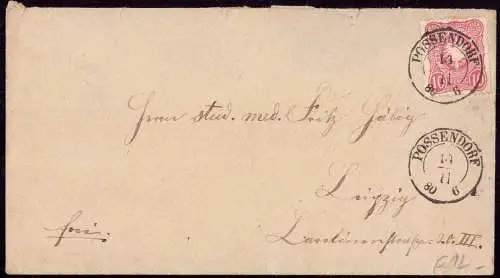 POSSENDORF
14
11
80 6
10
Herrn stud. med. Fritz
POSSENDORF
14
11
80 6
Leipzig
frei.
III.